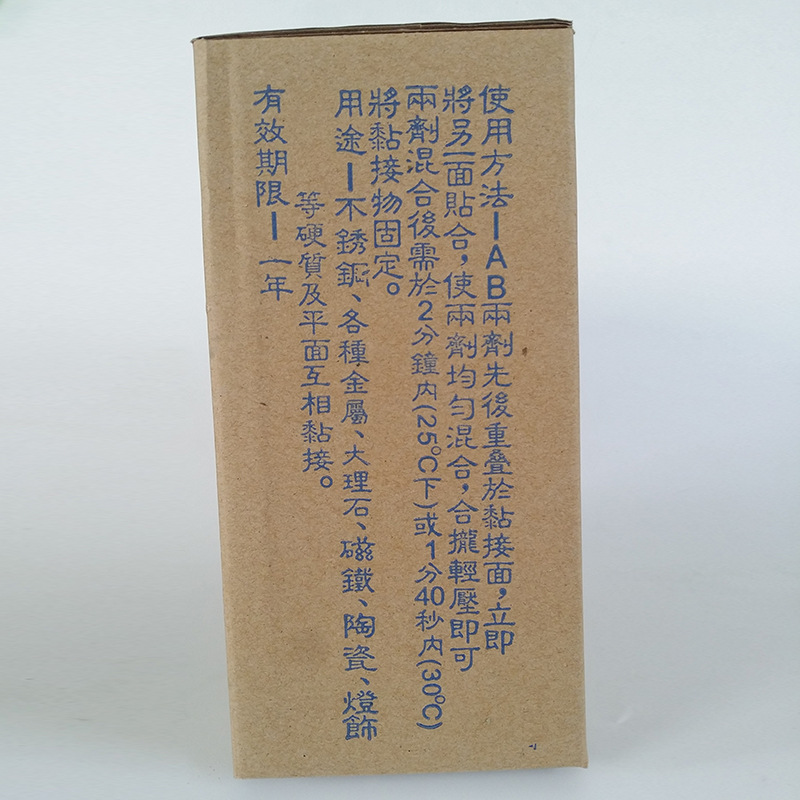 使用方法－AB兩劑先後重疊於黏接面，立即
將另一面貼合，使兩劑均勻混合，合攏輕壓即可
兩劑混合後需於2分鐘內(25°C下)或1分40秒內(30°C)
將黏接物固定。
用途－不銹鋼、各種金屬、大理石、磁鐵、陶瓷、燈飾
等硬質及平面互相黏接。
有效期限－一年